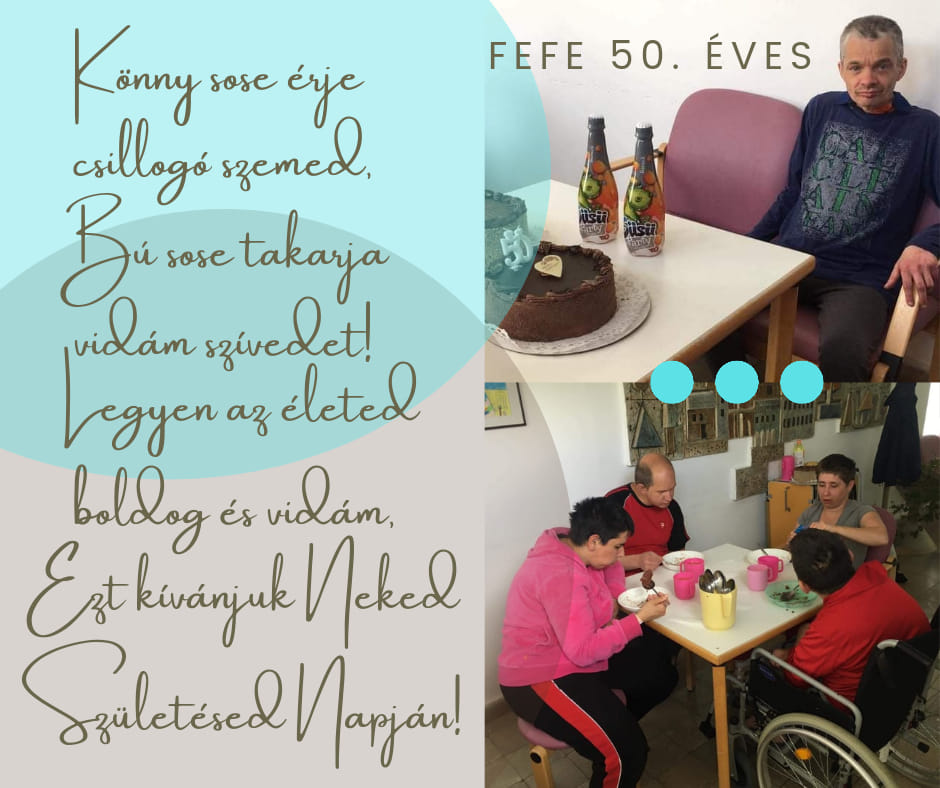 Könny sose érje
csillogó szemed,
Bú sose takarja
vidám szívedet!
Legyen az életed
boldog és vidám,
Ezt kívánjuk Neked
Születésed Napján!
FEFE 50. ÉVES
50
Party
Party